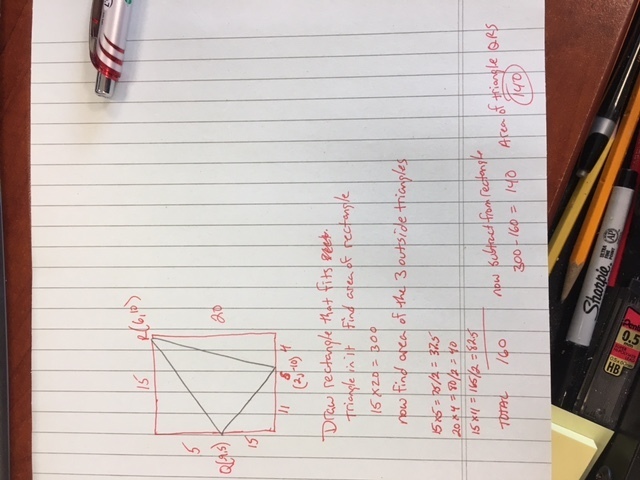 R(6,10)
15
20
5
Q(-9,5)
15
11
S
(2,-10)
4
Draw rectangle that fits
triangle in it find area of rectangle
15 x 20 = 300
now find area of the 3 outside triangles
15x5 = 75/2 = 37.5
20x4 = 80/2 = 40
15x11 = 165/2 = 82.5
TOTAL 160
now subtract from rectangle
300 - 160 = 140 Area of triangle QRS
140
Sharpie
AP
0.5
HB